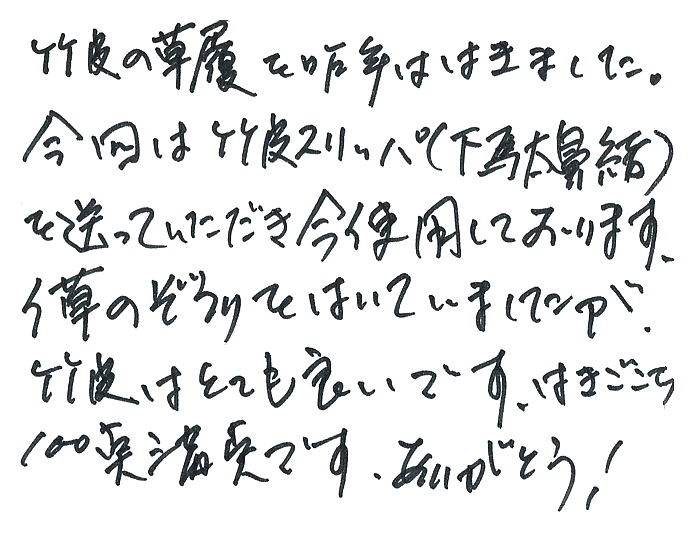 竹皮の草履を昨年ははきました。
今回は竹皮スリッパ(下馬太鼻緒)
を送っていただき今使用しております。
イ草のぞうりをはいていましたが、
竹皮はとても良いです、はきごこち
100点満点です、ありがとう!